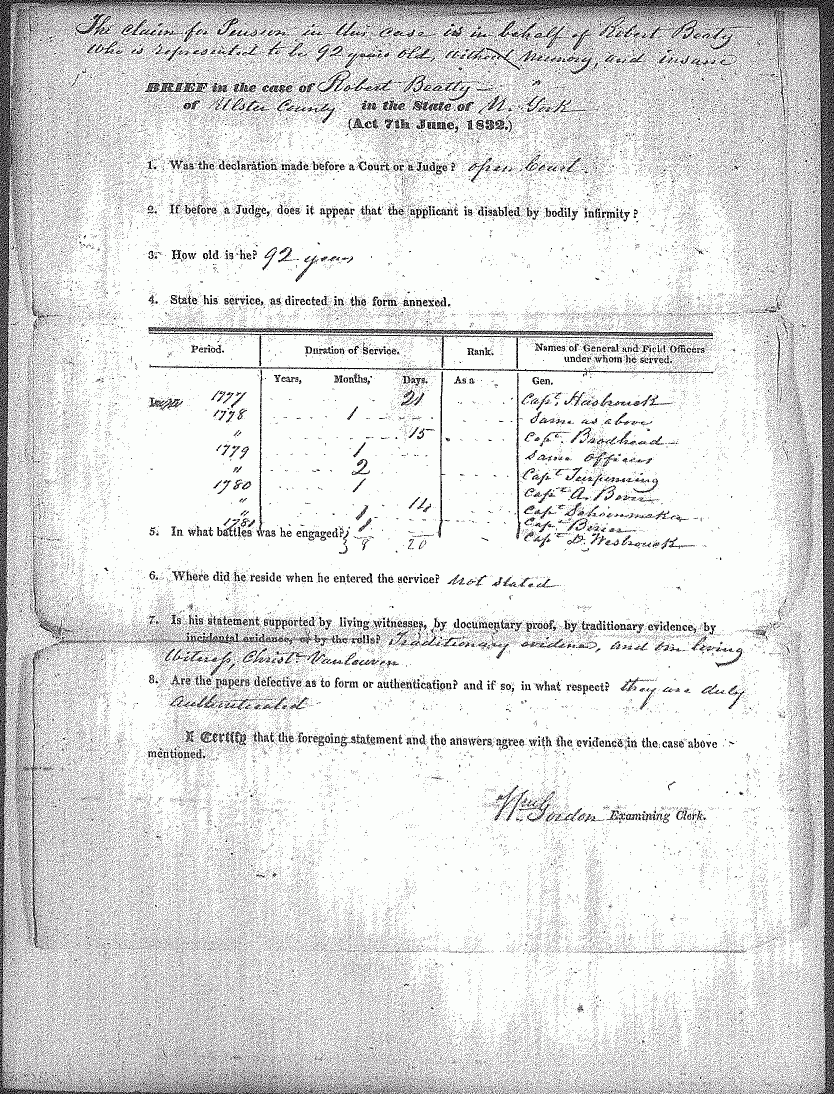 The claim for Pension in this case is in behalf of Robert Beaty
who is represented to be 92 years old, without memory, and insane
BRIEF in the case of Robert Beatty
of Ulster County in the State of N. York
(Act 7th June, 1832.)
1. Was the declaration made before a Court or a Judge? open Court.
2. If before a Judge, does it appear that the applicant is disabled by bodily infirmity?
3. How old is he? 92 years
4. State his service, as directed in the form annexed.
Period. Duration of Service. Rank. Names of General and Field Officers
under whom he served.
Years, Months, Days. As a Gen.
1777 21 Capt. Hasbrouck
1778 1 Same as above
" 15 Capt. Brodhead
1779 1 Same officers
" 2 Capt. Turpenning
1780 1 Capt. A. Bevier
" 14 Capt. Schoonmaker
" 1 Capt. Bevier
1781 1 Capt. D. Wesbrouck
5. In what battles was he engaged? 8 20
6. Where did he reside when he entered the service? Not stated
7. Is his statement supported by living witnesses, by documentary proof, by traditionary evidence, by
incidental evidence, or by the rolls? Traditionary evidence, and one living
Witness, Christ. Vanleuven
8. Are the papers defective as to form or authentication? and if so, in what respect? they are duly
authenticated
I Certify that the foregoing statement and the answers agree with the evidence in the case above
mentioned.
Wm Gordon Examining Clerk.